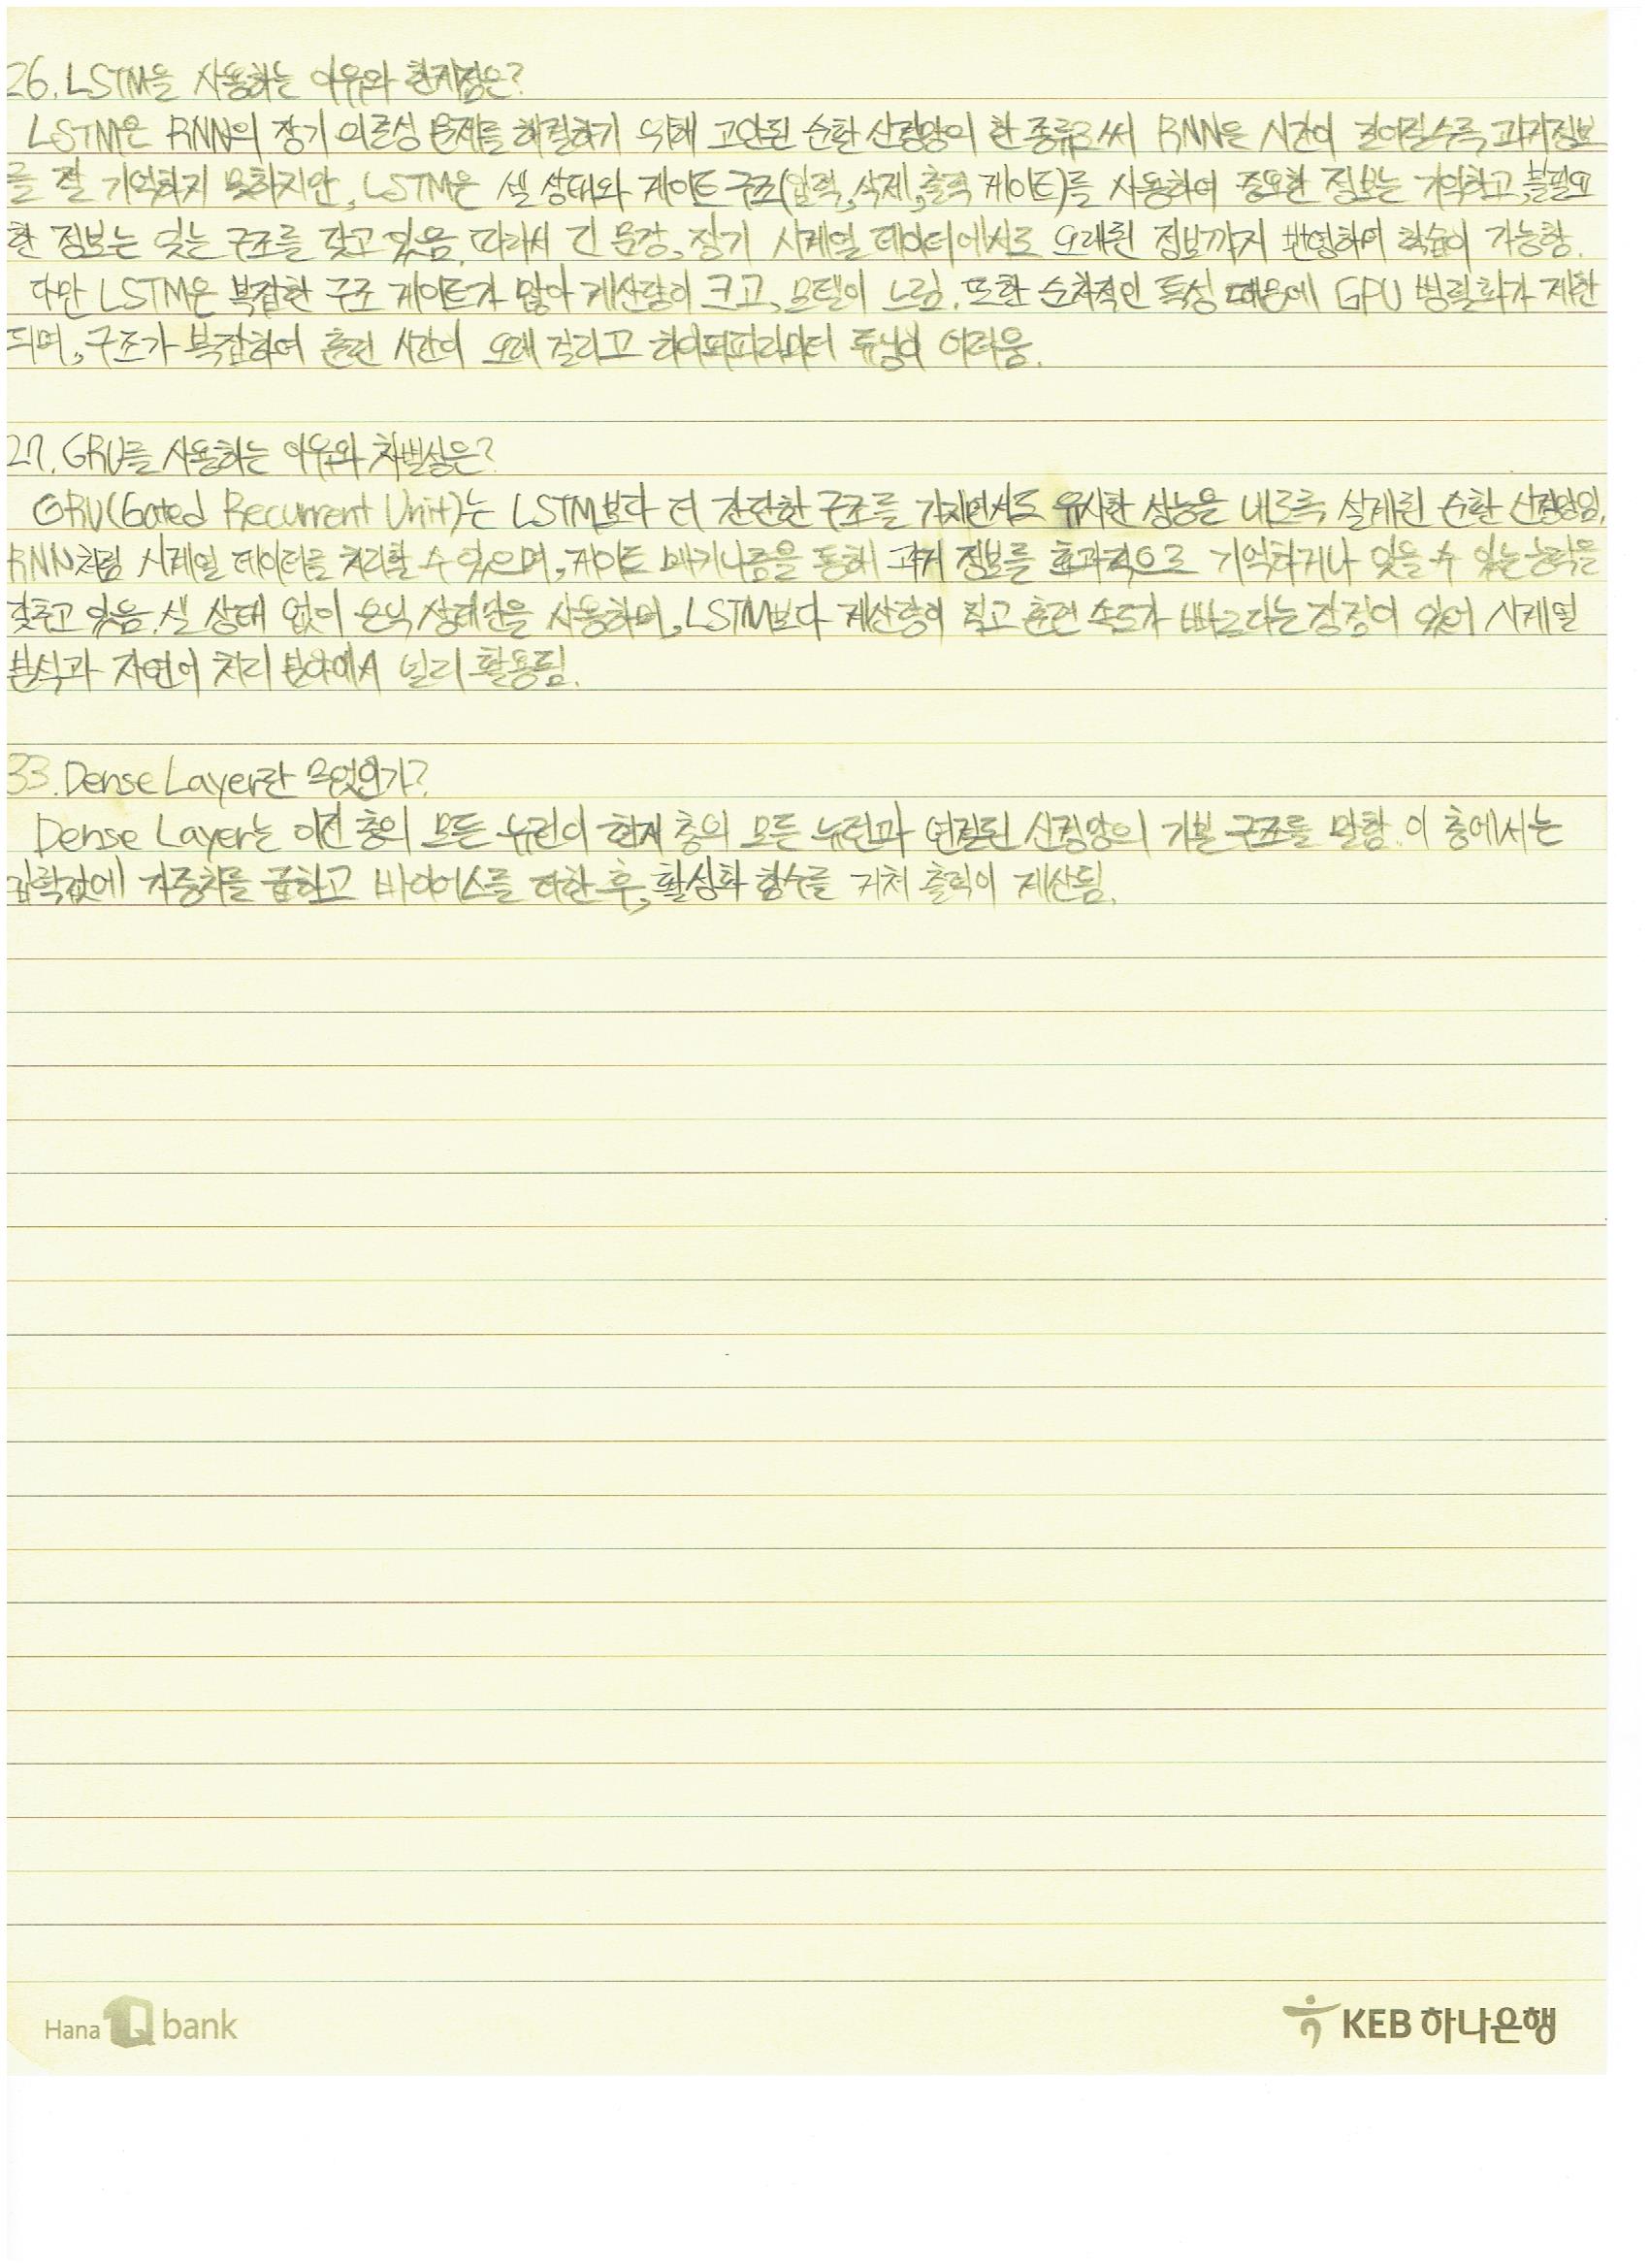 26. LSTM을 사용하는 이유와 한계점은?
LSTM은 RNN의 장기 의존성 문제를 해결하기 위해 고안된 순환 신경망의 한 종류로써 RNN은 시간이 길어질수록 과거정보
를 잘 기억하지 못하지만, LSTM은 셀 상태와 게이트 구조(입력, 삭제, 출력 게이트)를 사용하여 중요한 정보는 기억하고, 불필요
한 정보는 잊는 구조를 갖고 있음. 따라서 긴 문장, 장기 시계열 데이터에서도 오래된 정보까지 반영하여 학습이 가능함.
다만 LSTM은 복잡한 구조 게이트가 많아 계산량이 크고, 모델이 느림. 또한 순차적인 특성 때문에 GPU 병렬화가 제한
되며, 구조가 복잡하여 훈련 시간이 오래 걸리고 하이퍼파라미터 튜닝이 어려움.
27. GRU를 사용하는 이유와 차별성은?
GRU(Gated Recurrent Unit)는 LSTM보다 더 간단한 구조를 가지면서도 유사한 성능을 내도록 설계된 순환 신경망임.
RNN처럼 시계열 데이터를 처리할 수 있으며, 게이트 메커니즘을 통해 과거 정보를 효과적으로 기억하거나 잊을 수 있는 능력을
갖추고 있음. 셀 상태 없이 은닉 상태만을 사용하며, LSTM보다 계산량이 적고 훈련 속도가 빠르다는 장점이 있어 시계열
분석과 자연어 처리 분야에서 널리 활용됨.
33. Dense Layer란 무엇인가?
Dense Layer는 이전 층의 모든 뉴런이 현재 층의 모든 뉴런과 연결된 신경망의 기본 구조를 말함. 이 층에서는
입력값에 가중치를 곱하고 바이어스를 더한 후, 활성화 함수를 거쳐 출력이 계산됨.
Hana 1Q bank
KEB 하나은행